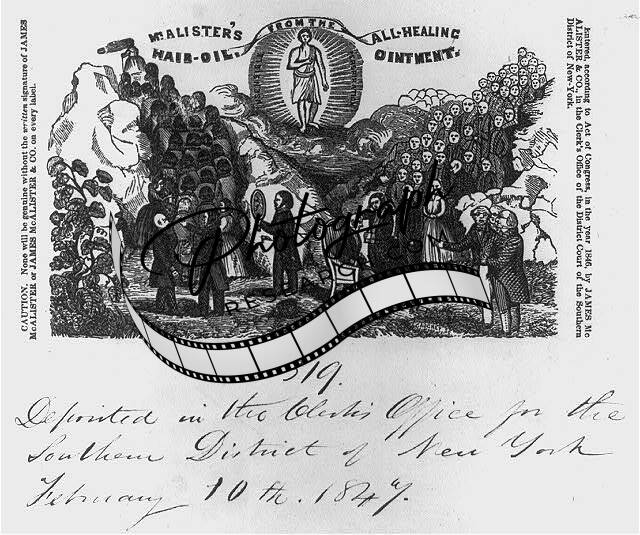 CAUTION. None will be genuine without the written signature of JAMES
McALISTER or JAMES McALISTER & CO. on every label.
McALISTER'S
HAIR-OIL.
FROM THE
ALL-HEALING
OINTMENT.
Entered, according to Act of Congress, in the year 1846, by JAMES Mc
ALISTER & CO., in the Clerk's Office of the District Court of the Southern
District of New-York.
Photograph
319.
Deposited in the Clerk's Office for the
Southern District of New York
February 10th. 1847.